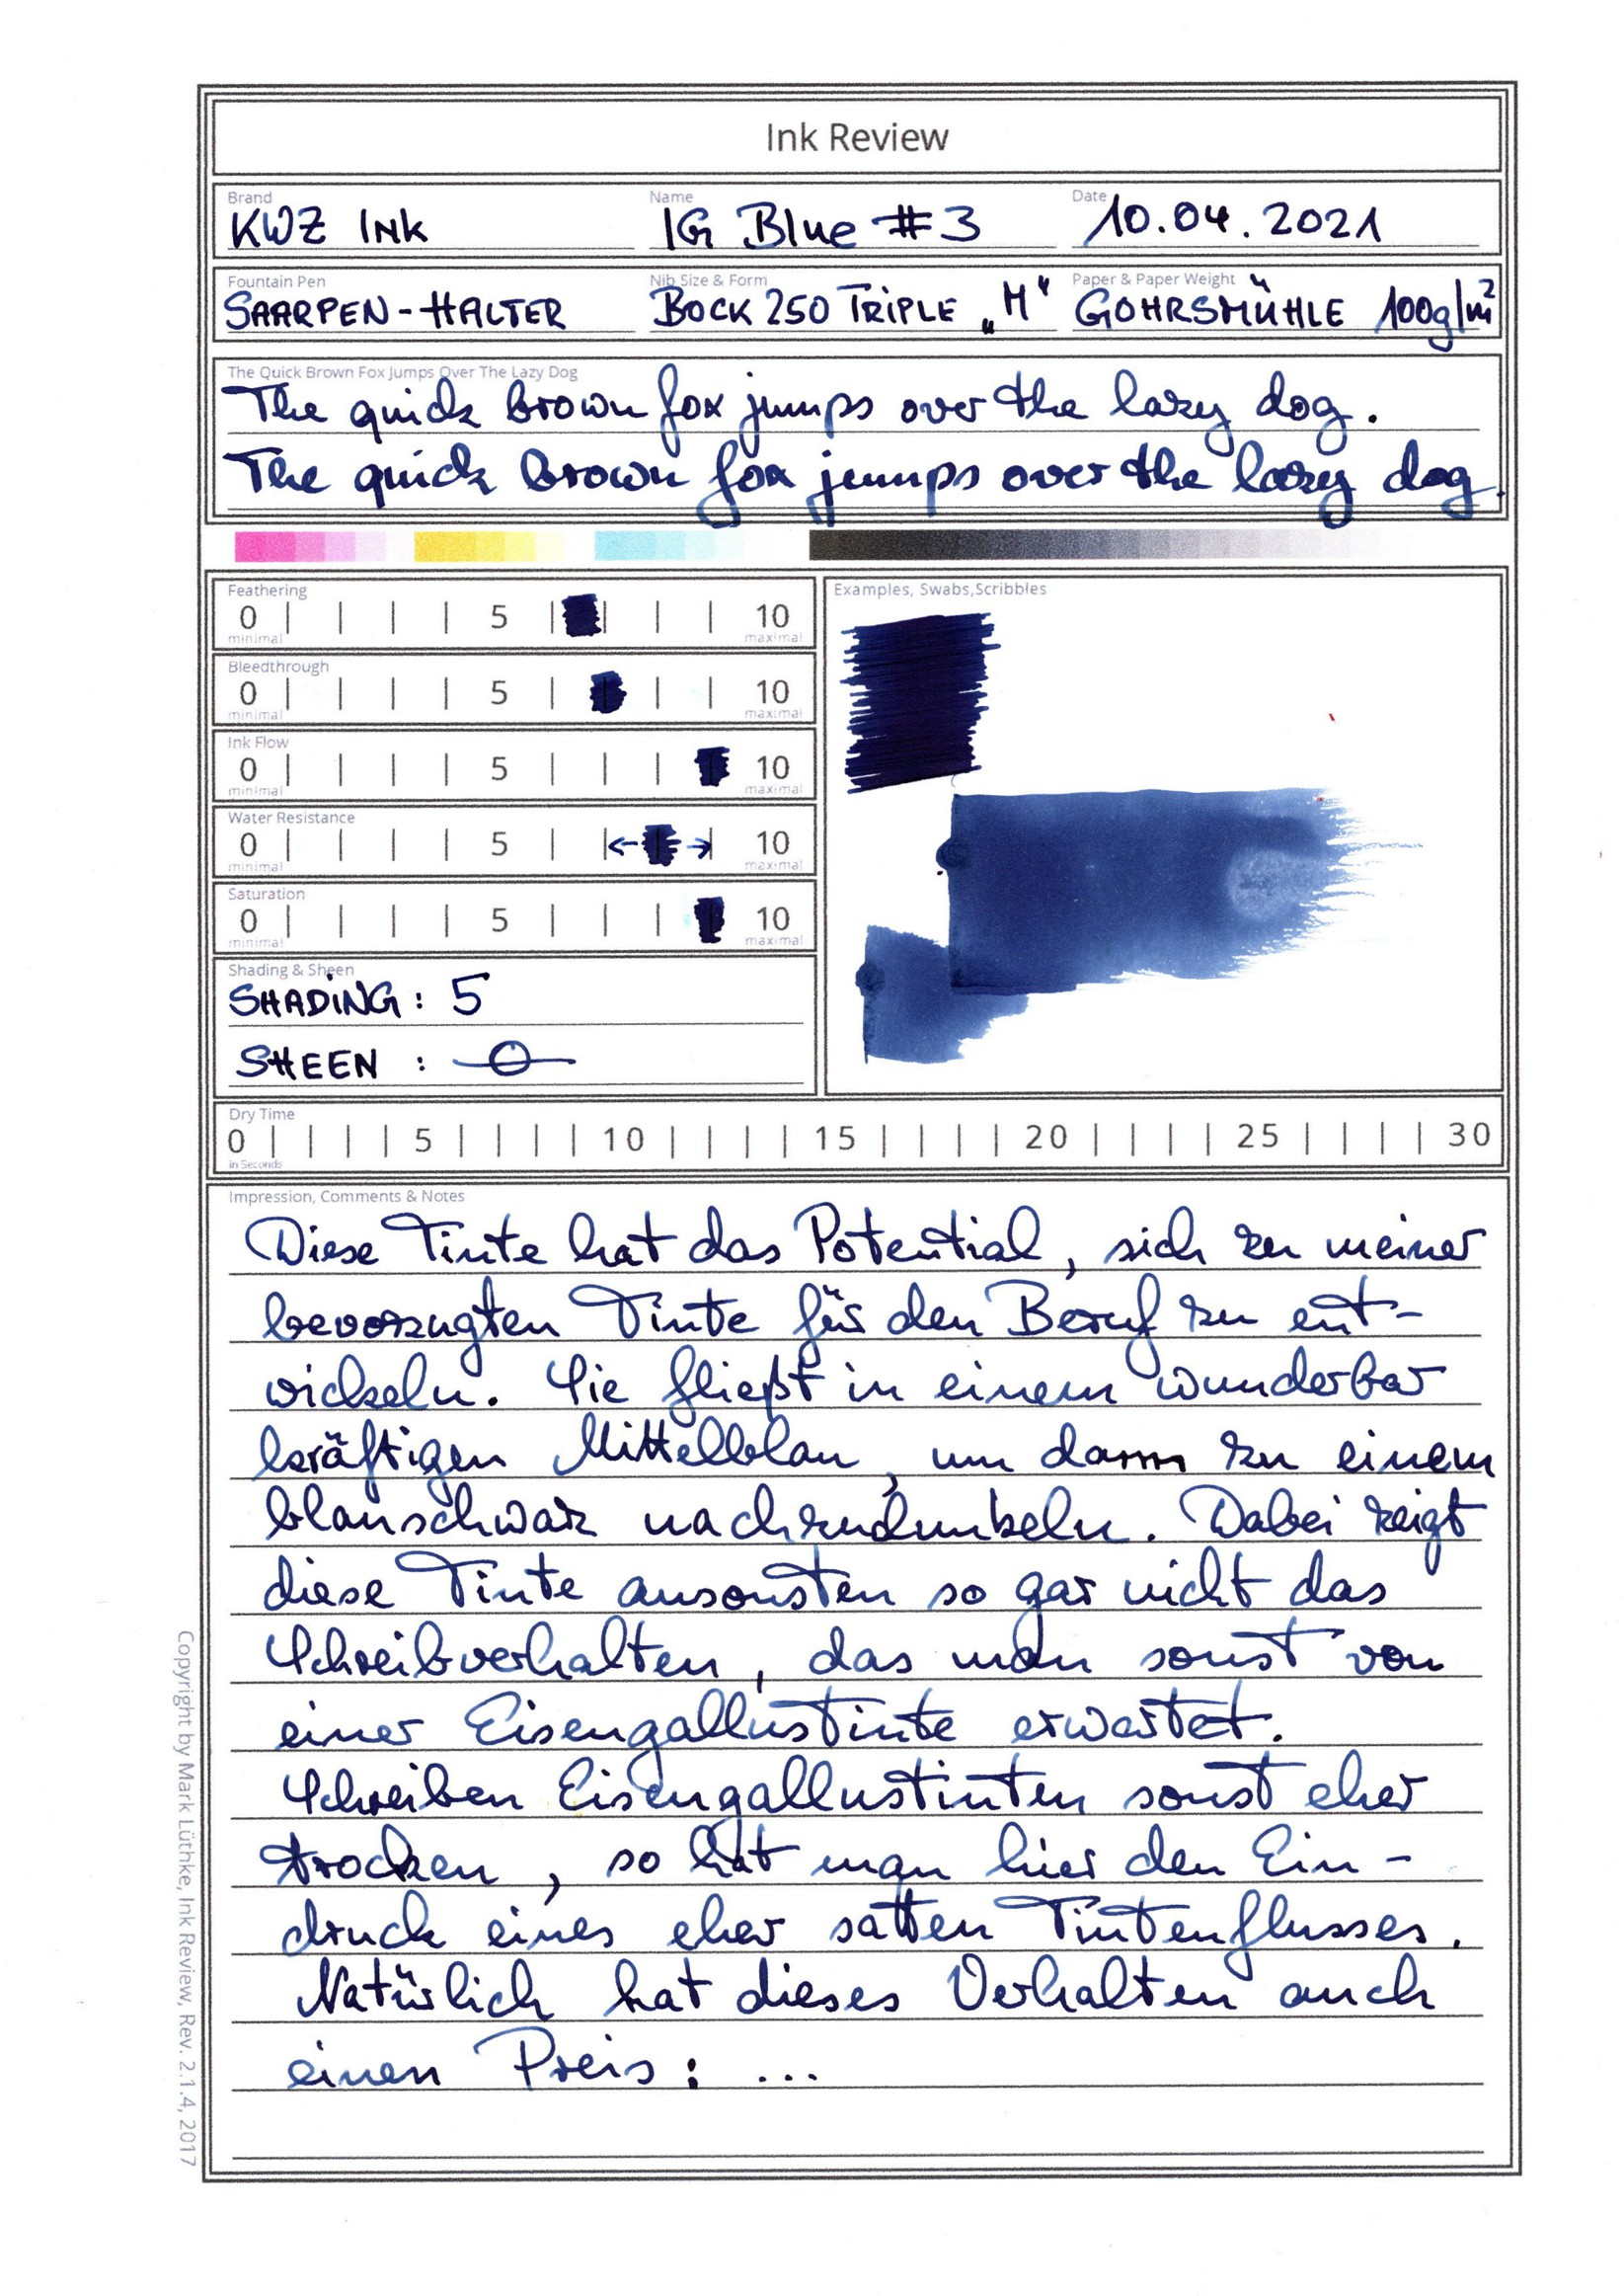 Ink Review
Brand Name Date
KWZ Ink IG Blue #3 10.04.2021
Fountain Pen Nib Size & Form Paper & Paper Weight
SAARPEN-HALTER BOCK 250 TRIPLE „M“ GOHRSMÜHLE 100g/m²
The Quick Brown Fox Jumps Over The Lazy Dog
The quick brown fox jumps over the lazy dog.
The quick brown fox jumps over the lazy dog.
Feathering
0 | | | | 5 | | | | 10
minimal maximal
Bleedthrough
0 | | | | 5 | | | | 10
minimal maximal
Ink Flow
0 | | | | 5 | | | | 10
minimal maximal
Water Resistance
0 | | | | 5 | |← →| 10
minimal maximal
Saturation
0 | | | | 5 | | | | 10
minimal maximal
Shading & Sheen
SHADING: 5
SHEEN : –0–
Examples, Swabs,Scribbles
Dry Time
0 | | | | 5 | | | | 10 | | | | 15 | | | | 20 | | | | 25 | | | | 30
in Seconds
Impression, Comments & Notes
Diese Tinte hat das Potential, sich zu meiner
bevorzugten Tinte für den Beruf zu ent-
wickeln. Sie fließt in einem wunderbar
kräftigen Mittelblau, um dann zu einem
blauschwarz nachzudunkeln. Dabei zeigt
diese Tinte ansonsten so gar nicht das
Schreibverhalten, das man sonst von
einer Eisengallustinte erwartet.
Schreiben Eisengallustinten sonst eher
trocken, so hat man hier den Ein-
druck eines eher satten Tintenflusses.
Natürlich hat dieses Verhalten auch
einen Preis: ...
Copyright by Mark Lüthke, Ink Review, Rev. 2.1.4, 2017